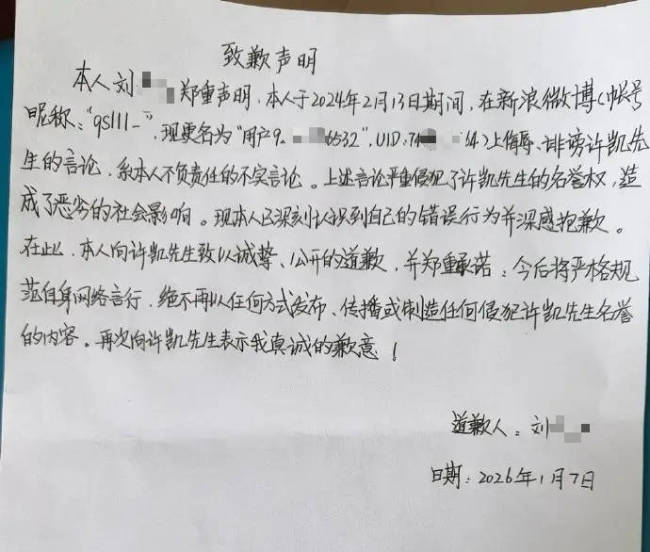 致歉声明
本人刘 郑重声明,本人于2024年2月13日期间,在新浪微博(帐号
昵称:"qs111_",现更名为"用户9 6532",UID:74 54)上侮辱、诽谤许凯先
生的言论,系本人不负责任的不实言论。上述言论严重侵犯了许凯先生的名誉权,造
成了恶劣的社会影响。现本人已深刻认识到自己的错误行为并深感抱歉。
在此,本人向许凯先生致以诚挚、公开的道歉,并郑重承诺:今后将严格规
范自身网络言行,绝不再以任何方式发布、传播或制造任何侵犯许凯先生名誉
的内容。再次向许凯先生表示我真诚的歉意!
道歉人:刘
日期:2026年1月7日